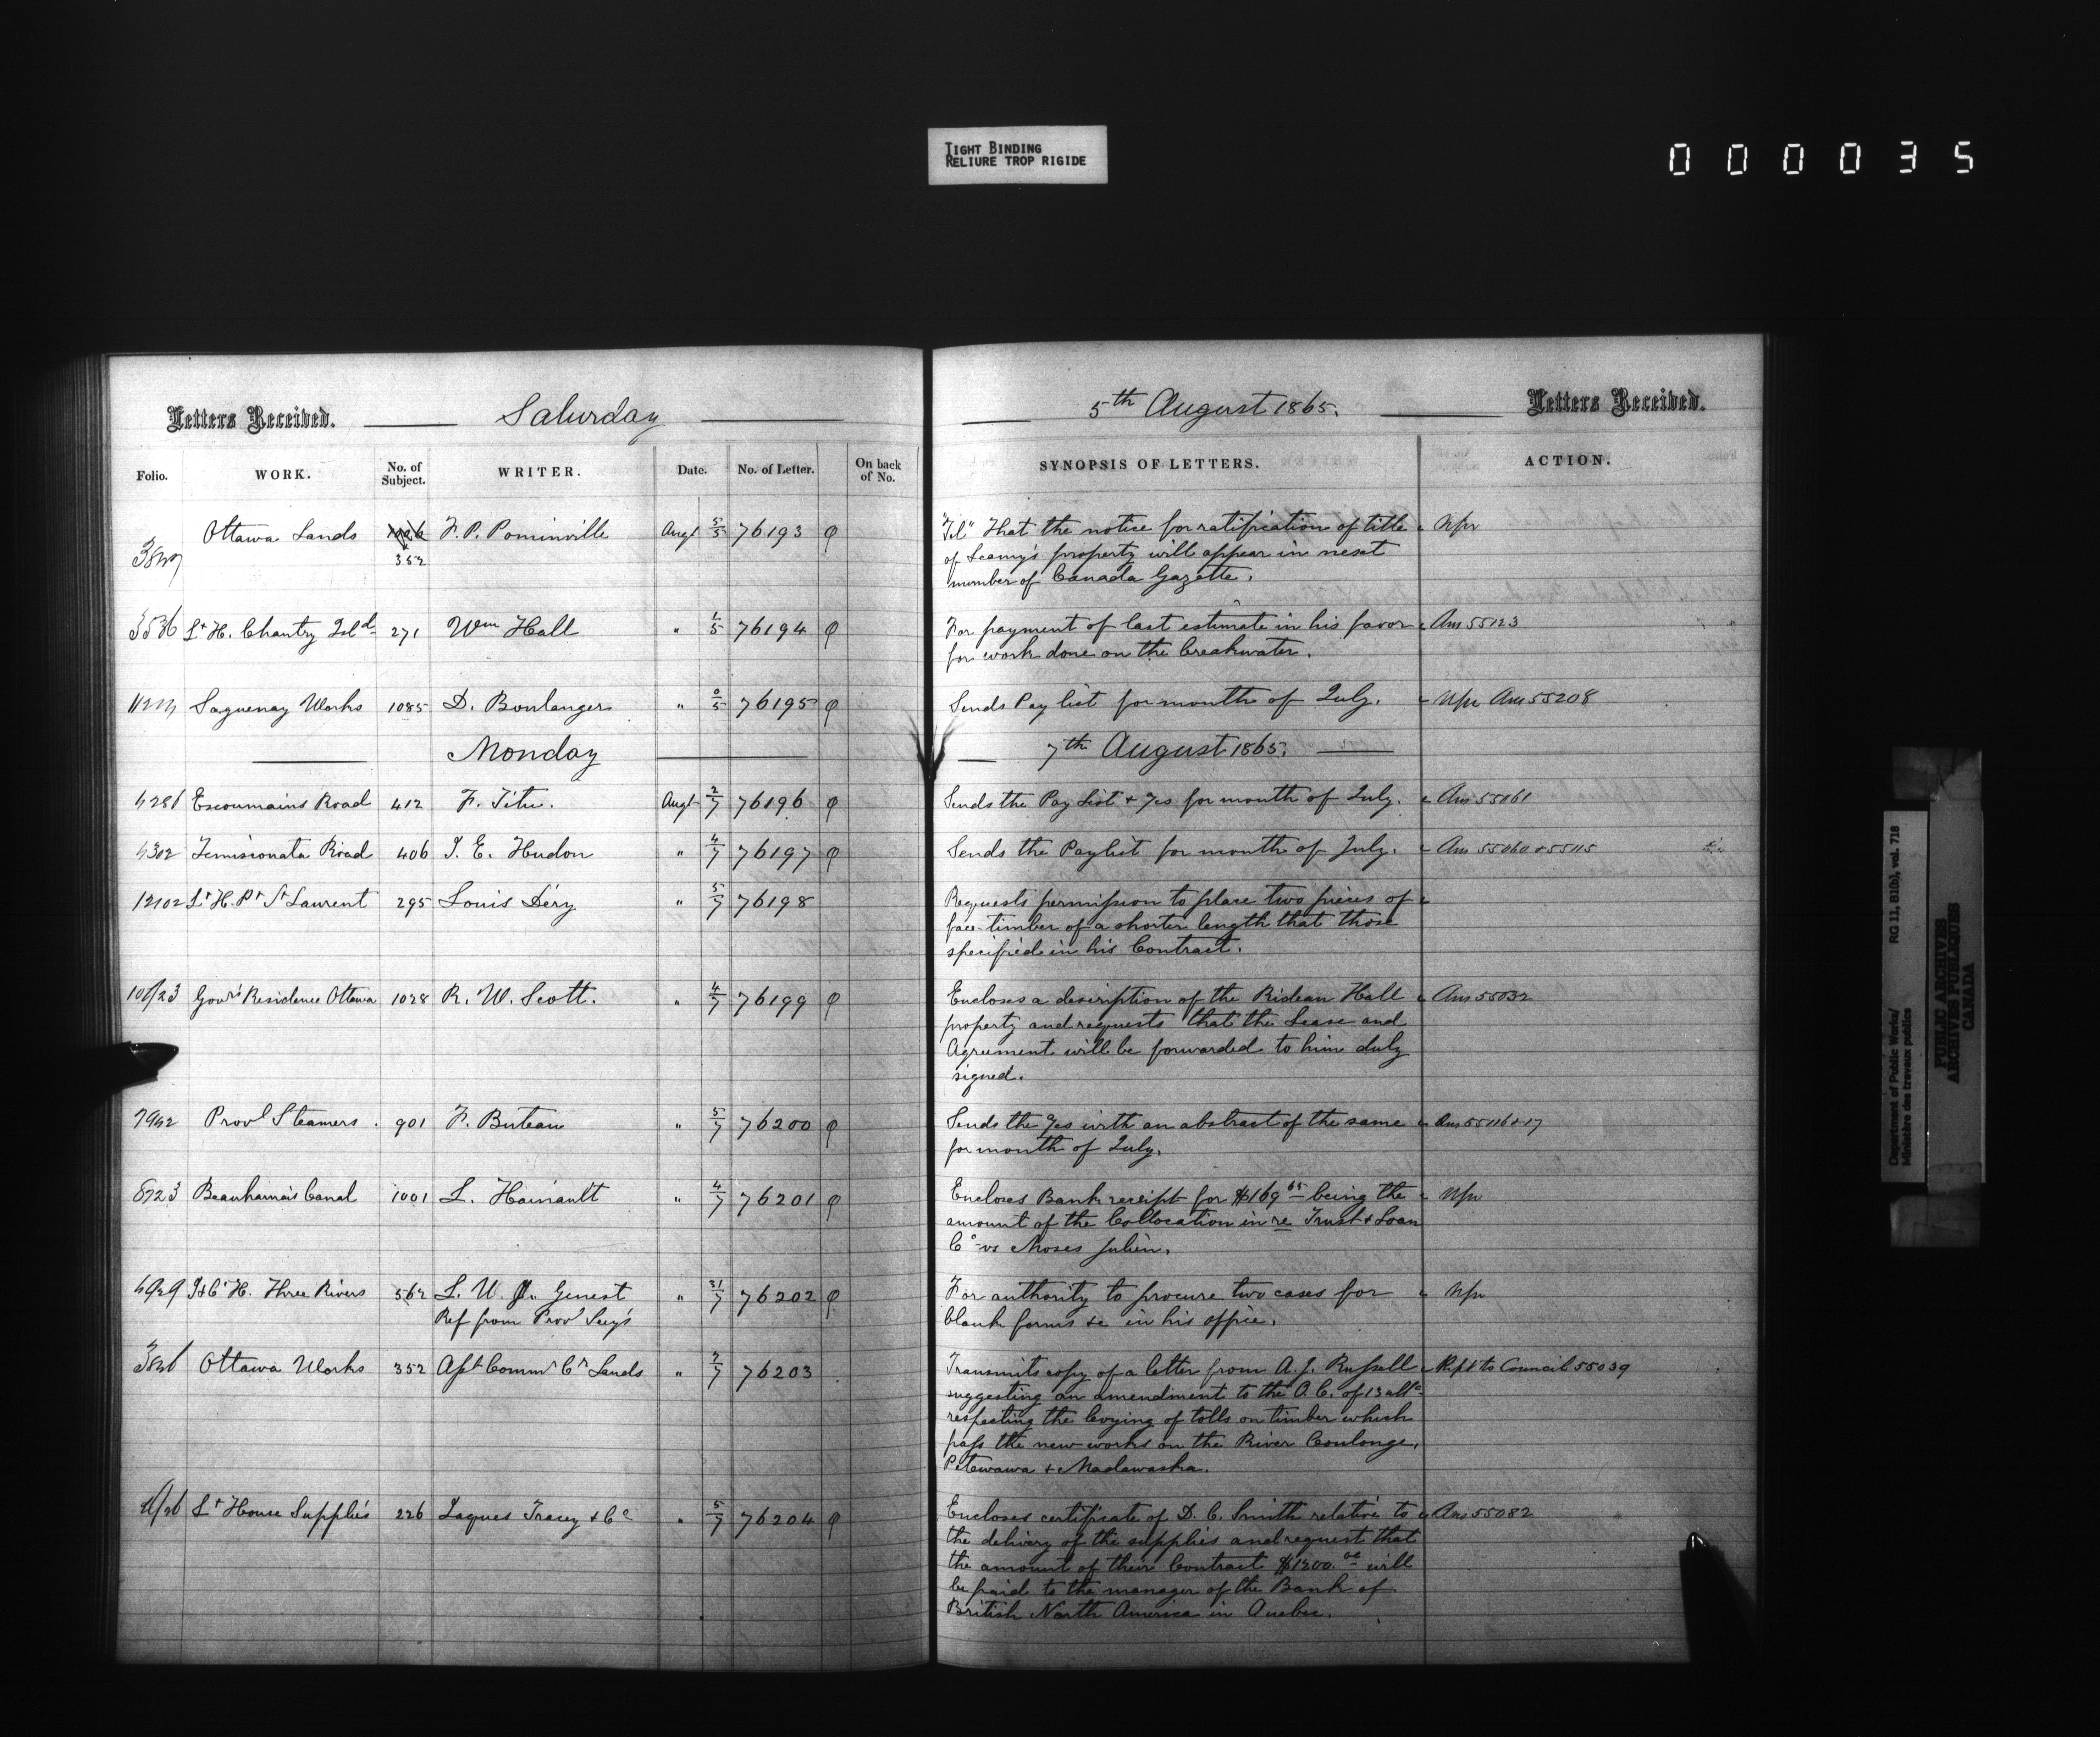 TIGHT BINDING
RELIURE TROP RIGIDE
000035
Letters Received. Saturday
Folio. WORK. No. of Subject. WRITER. Date. No. of Letter. On back of No.
Ottawa Lands F. P. Pominville Augt 5/5 76193
352
Lt H. Chantry Isld 271 Wm Hall " 1/5 76194
Saguenay Works 1085 D. Boulanger " 0/5 76195
Monday
Escoumains Road 412 F. Têtu. Augt 2/7 76196
4302 Temisconata Road 406 J. E. Hudon " 4/7 76197
12102 Lt H. Pt St Laurent 295 Louis Déry " 5/7 76198
Govr's Residence Ottawa 1028 R. W. Scott. " 4/7 76199
7942 Provl Steamers. 901 F. Buteau " 5/7 76200
8723 Beauharnais Canal 1001 L. Hainault " 4/7 76201
H. Three Rivers 562 L. U. A. Genest " 31/7 76202
Ref from Provl Secy's
Ottawa Works 352 Asst Commr Cn Lands " 7/7 76203
Lt House Supplies 226 Jaques Tracey & Co " 5/7 76204
5th August 1865. Letters Received.
SYNOPSIS OF LETTERS. ACTION.
"Tel" That the notice for ratification of title Npr
of Leamy's property will appear in next
number of Canada Gazette.
For payment of last estimate in his favor Ans 55123
for work done on the breakwater.
Sends Pay list for month of July. Npr Ans 55208
7th August 1865.
Sends the Pay List & %s for month of July. Ans 55061
Sends the Paylist for month of July. Ans 55060 & 55115
Requests permission to place two pieces of
face timber of a shorter length that those
specified in his Contract.
Encloses a description of the Rideau Hall Ans 55032
property and requests that the Lease and
Agreement will be forwarded to him duly
signed.
Sends the %s with an abstract of the same Ans 55116 & 17
for month of July.
Encloses Bank receipt for $169 65 being the Npr
amount of the Collocation in re Trust & Loan
Co vs Moses Julien.
For authority to procure two cases for Npr
blank forms &c in his office.
Transmits copy of a letter from A. J. Russell Rept to Council 55039
suggesting an amendment to the O. C. of 13 ulto
respecting the levying of tolls on timber which
pass the new works on the River Coulonge,
Petewawa & Madawaska.
Encloses certificate of D. C. Smith relative to Ans 55082
the delivery of the supplies and request that
the amount of their Contract $1200.00 will
be paid to the manager of the Bank of
British North America in Quebec.
Department of Public Works/ RG 11, B1(b), vol. 718
Ministère des travaux publics
PUBLIC ARCHIVES
ARCHIVES PUBLIQUES
CANADA